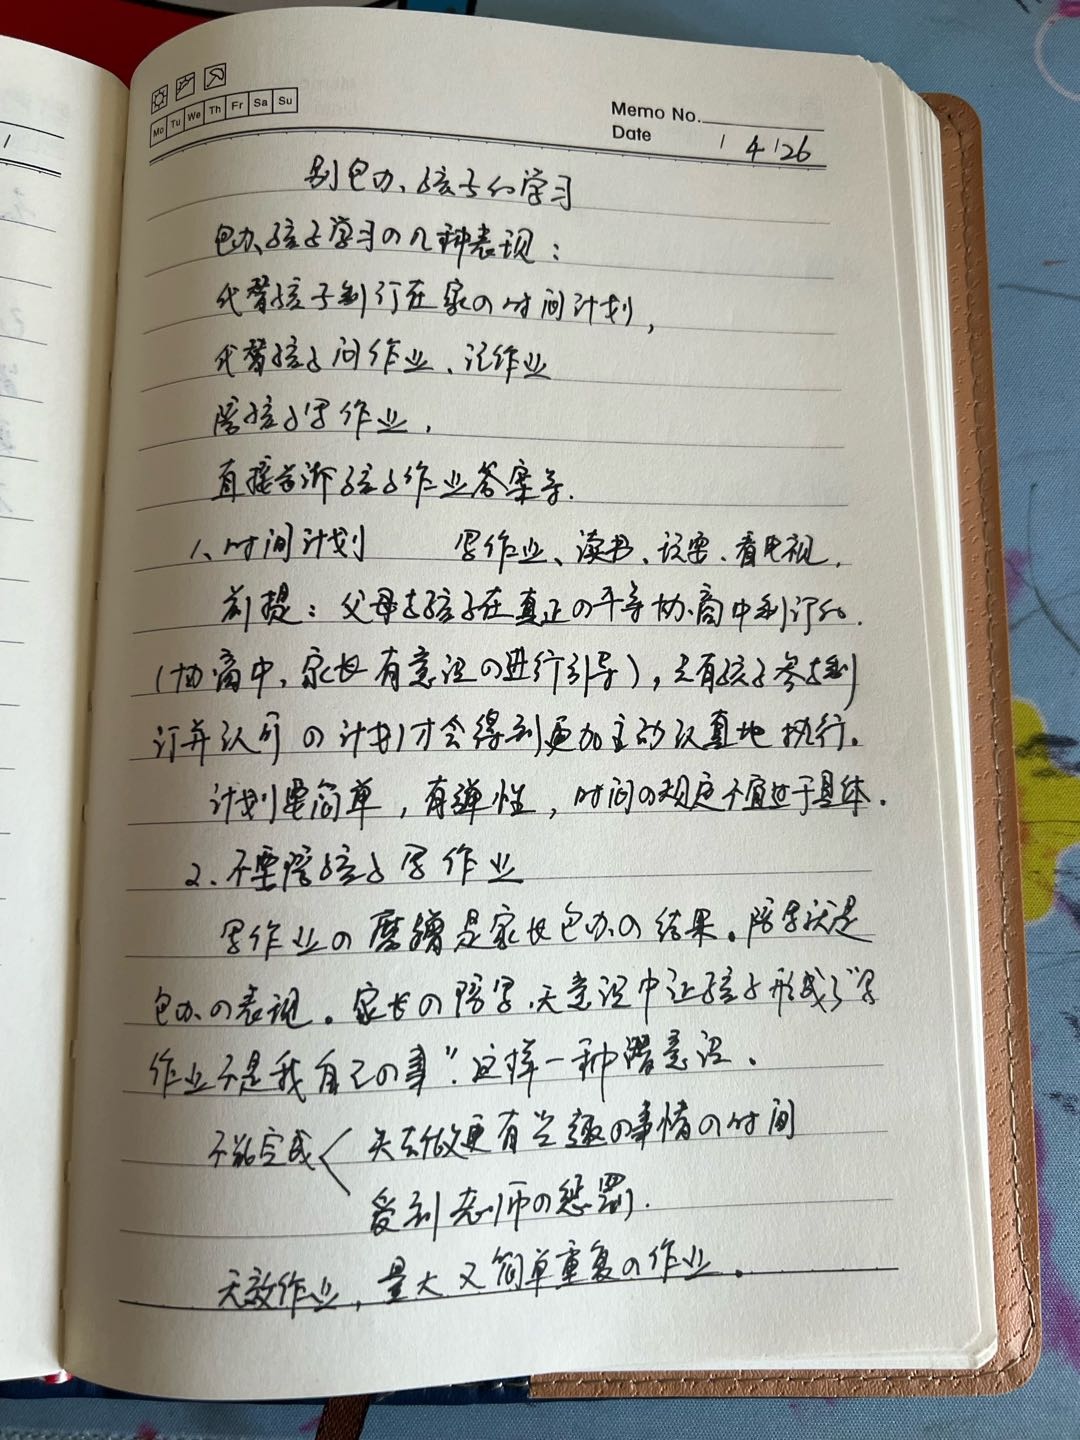 Mo Tu We Th Fr Sa Su
Memo No.
Date 1 4 26
别包办孩子的学习
包办孩子学习の几种表现：
代替孩子制订在家の时间计划，
代替孩子问作业、记作业
陪孩子写作业，
直接告诉孩子作业答案等.
1、时间计划 写作业、读书、玩耍、看电视.
前提：父母与孩子在真正の平等协商中制订的.
(协商中，家长有意识の进行引导)，只有孩子参与制
订并认可の计划才会得到更加主动认真地执行。
计划要简单，有弹性，时间の规定不宜过于具体.
2、不要陪孩子写作业
写作业の磨蹭是家长包办の结果。陪写就是
包办の表现。家长の陪写，无意识中让孩子形成了“写
作业不是我自己の事”.这样一种潜意识.
不能完成< 失去做更有兴趣の事情の时间
受到老师の惩罚.
无效作业，量大又简单重复の作业。